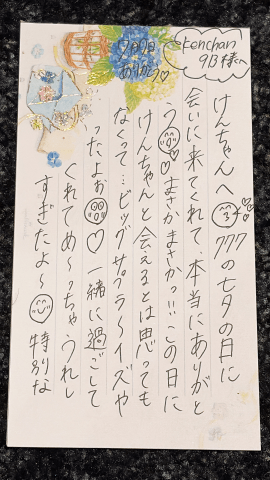 Kenchan
9日様へ
7月7日
ありがとう♡
けんちゃんへ
777の七夕の日に
会いに来てくれて、本当にありがと
う♡まさかまさかっ!!!この日に
けんちゃんと会えるとは思っても
なくって…ビッグサプラ〜イズや
ったよぉ♡一緒に過ごして
くれてめ〜っちゃうれし
すぎたよ〜特別な